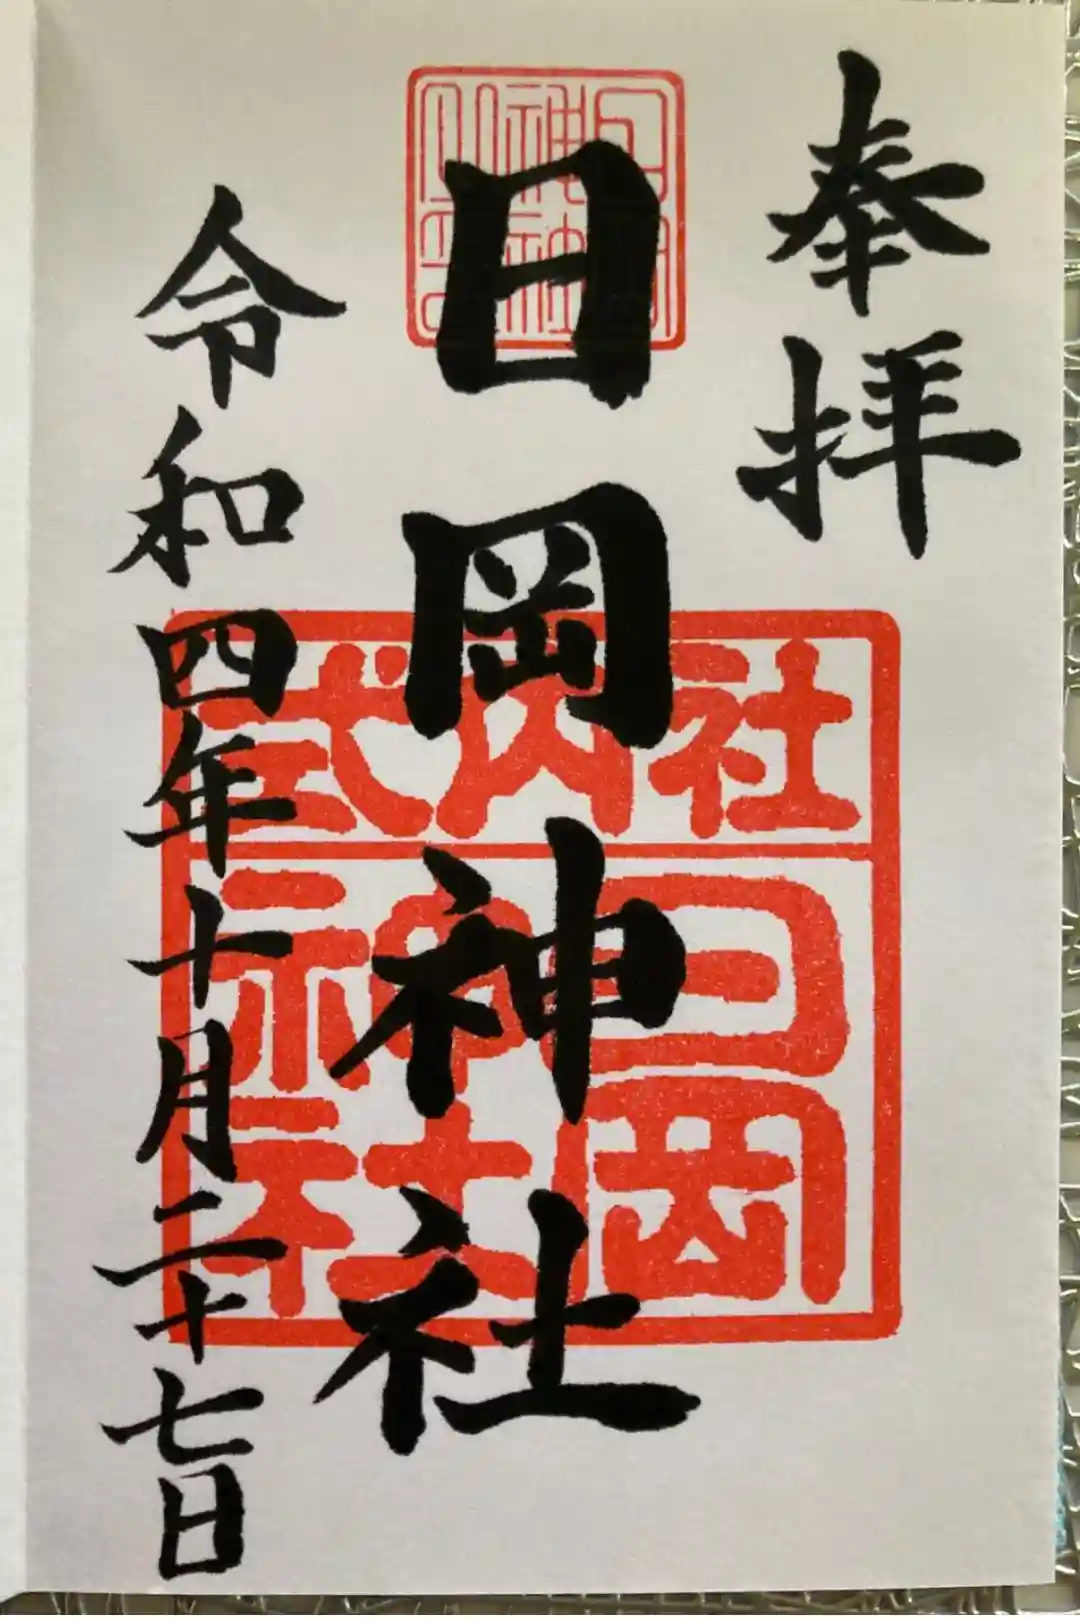 奉拝
日岡神社
令和四年十月二十七日
日岡神社之印
式内社
日岡神社